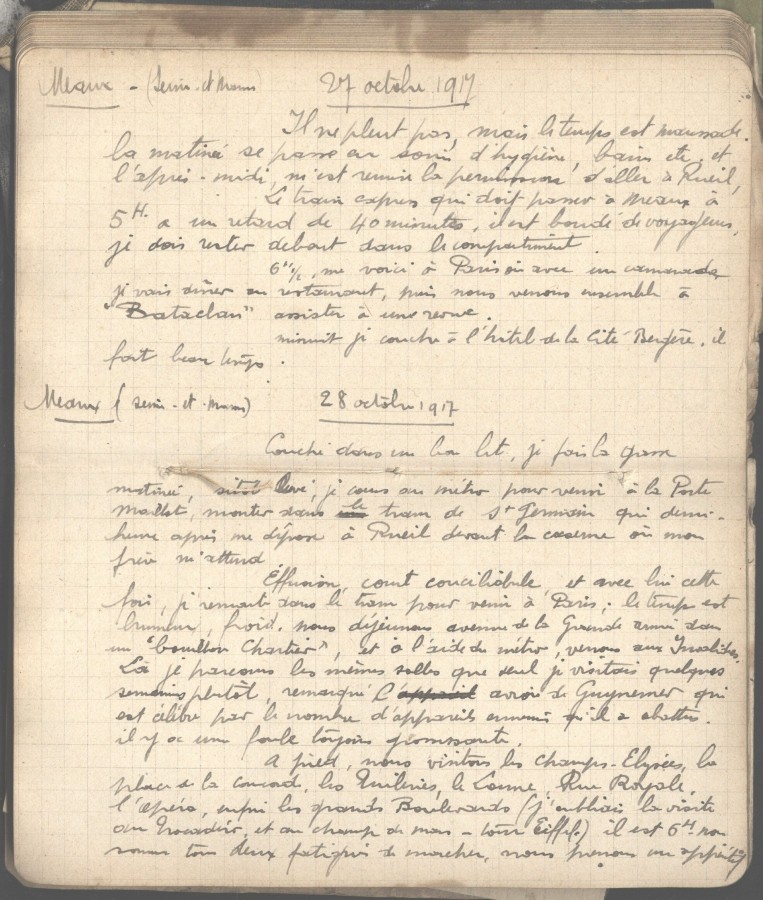 Meaux - (Seine-et-Marne) 27 octobre 1917
Il ne pleut pas, mais le temps est maussade.
la matinée se passe en soins d'hygiène, bains etc. et
l'après-midi, m'est remise la permission d'aller à Rueil,
Le train express qui doit passer à Meaux à
5H. a un retard de 40 minutes, il est bondé de voyageurs,
je dois rester debout dans le compartiment.
6H1/2, me voici à Paris où avec un camarade
je vais dîner au restaurant, puis nous venons ensemble à
"Bataclan" assister à une revue.
minuit je couche à l'hôtel de la Cité Bergère. il
fait beau temps.
Meaux (Seine-et-Marne) 28 octobre 1917
Couché dans un bon lit, je fais la grasse
matinée, sitôt levé, je cours au métro pour venir à la Porte
Maillot, monter dans le tram de St Germain qui demi-
heure après me dépose à Rueil devant la caserne où mon
frère m'attend
Effusion, court conciliabule, et avec lui cette
fois, je remonte dans le tram pour venir à Paris; le temps est
brumeux, froid. nous déjeunons avenue de la Grande armée dans
un "bouillon Chartier", et à l'aide du métro, venons aux Invalides.
Là je parcours les mêmes salles que seul je visitais quelques
semaines plutôt, remarqué l'appareil avion de Guynemer qui
est célèbre par le nombre d'appareils ennemis qu'il a abattus.
il y a une foule toujours grossissante.
A pied, nous visitons les Champs-Elysées, la
place de la concorde, les Tuileries, le Louvre, Rue Royale,
l'opéra, enfin les grands Boulevards (j'oubliais la visite
au Trocadéro, et au champ de mars - tour Eiffel.) il est 6H nous
sommes tous deux fatigués de marcher, nous prenons un apéritif